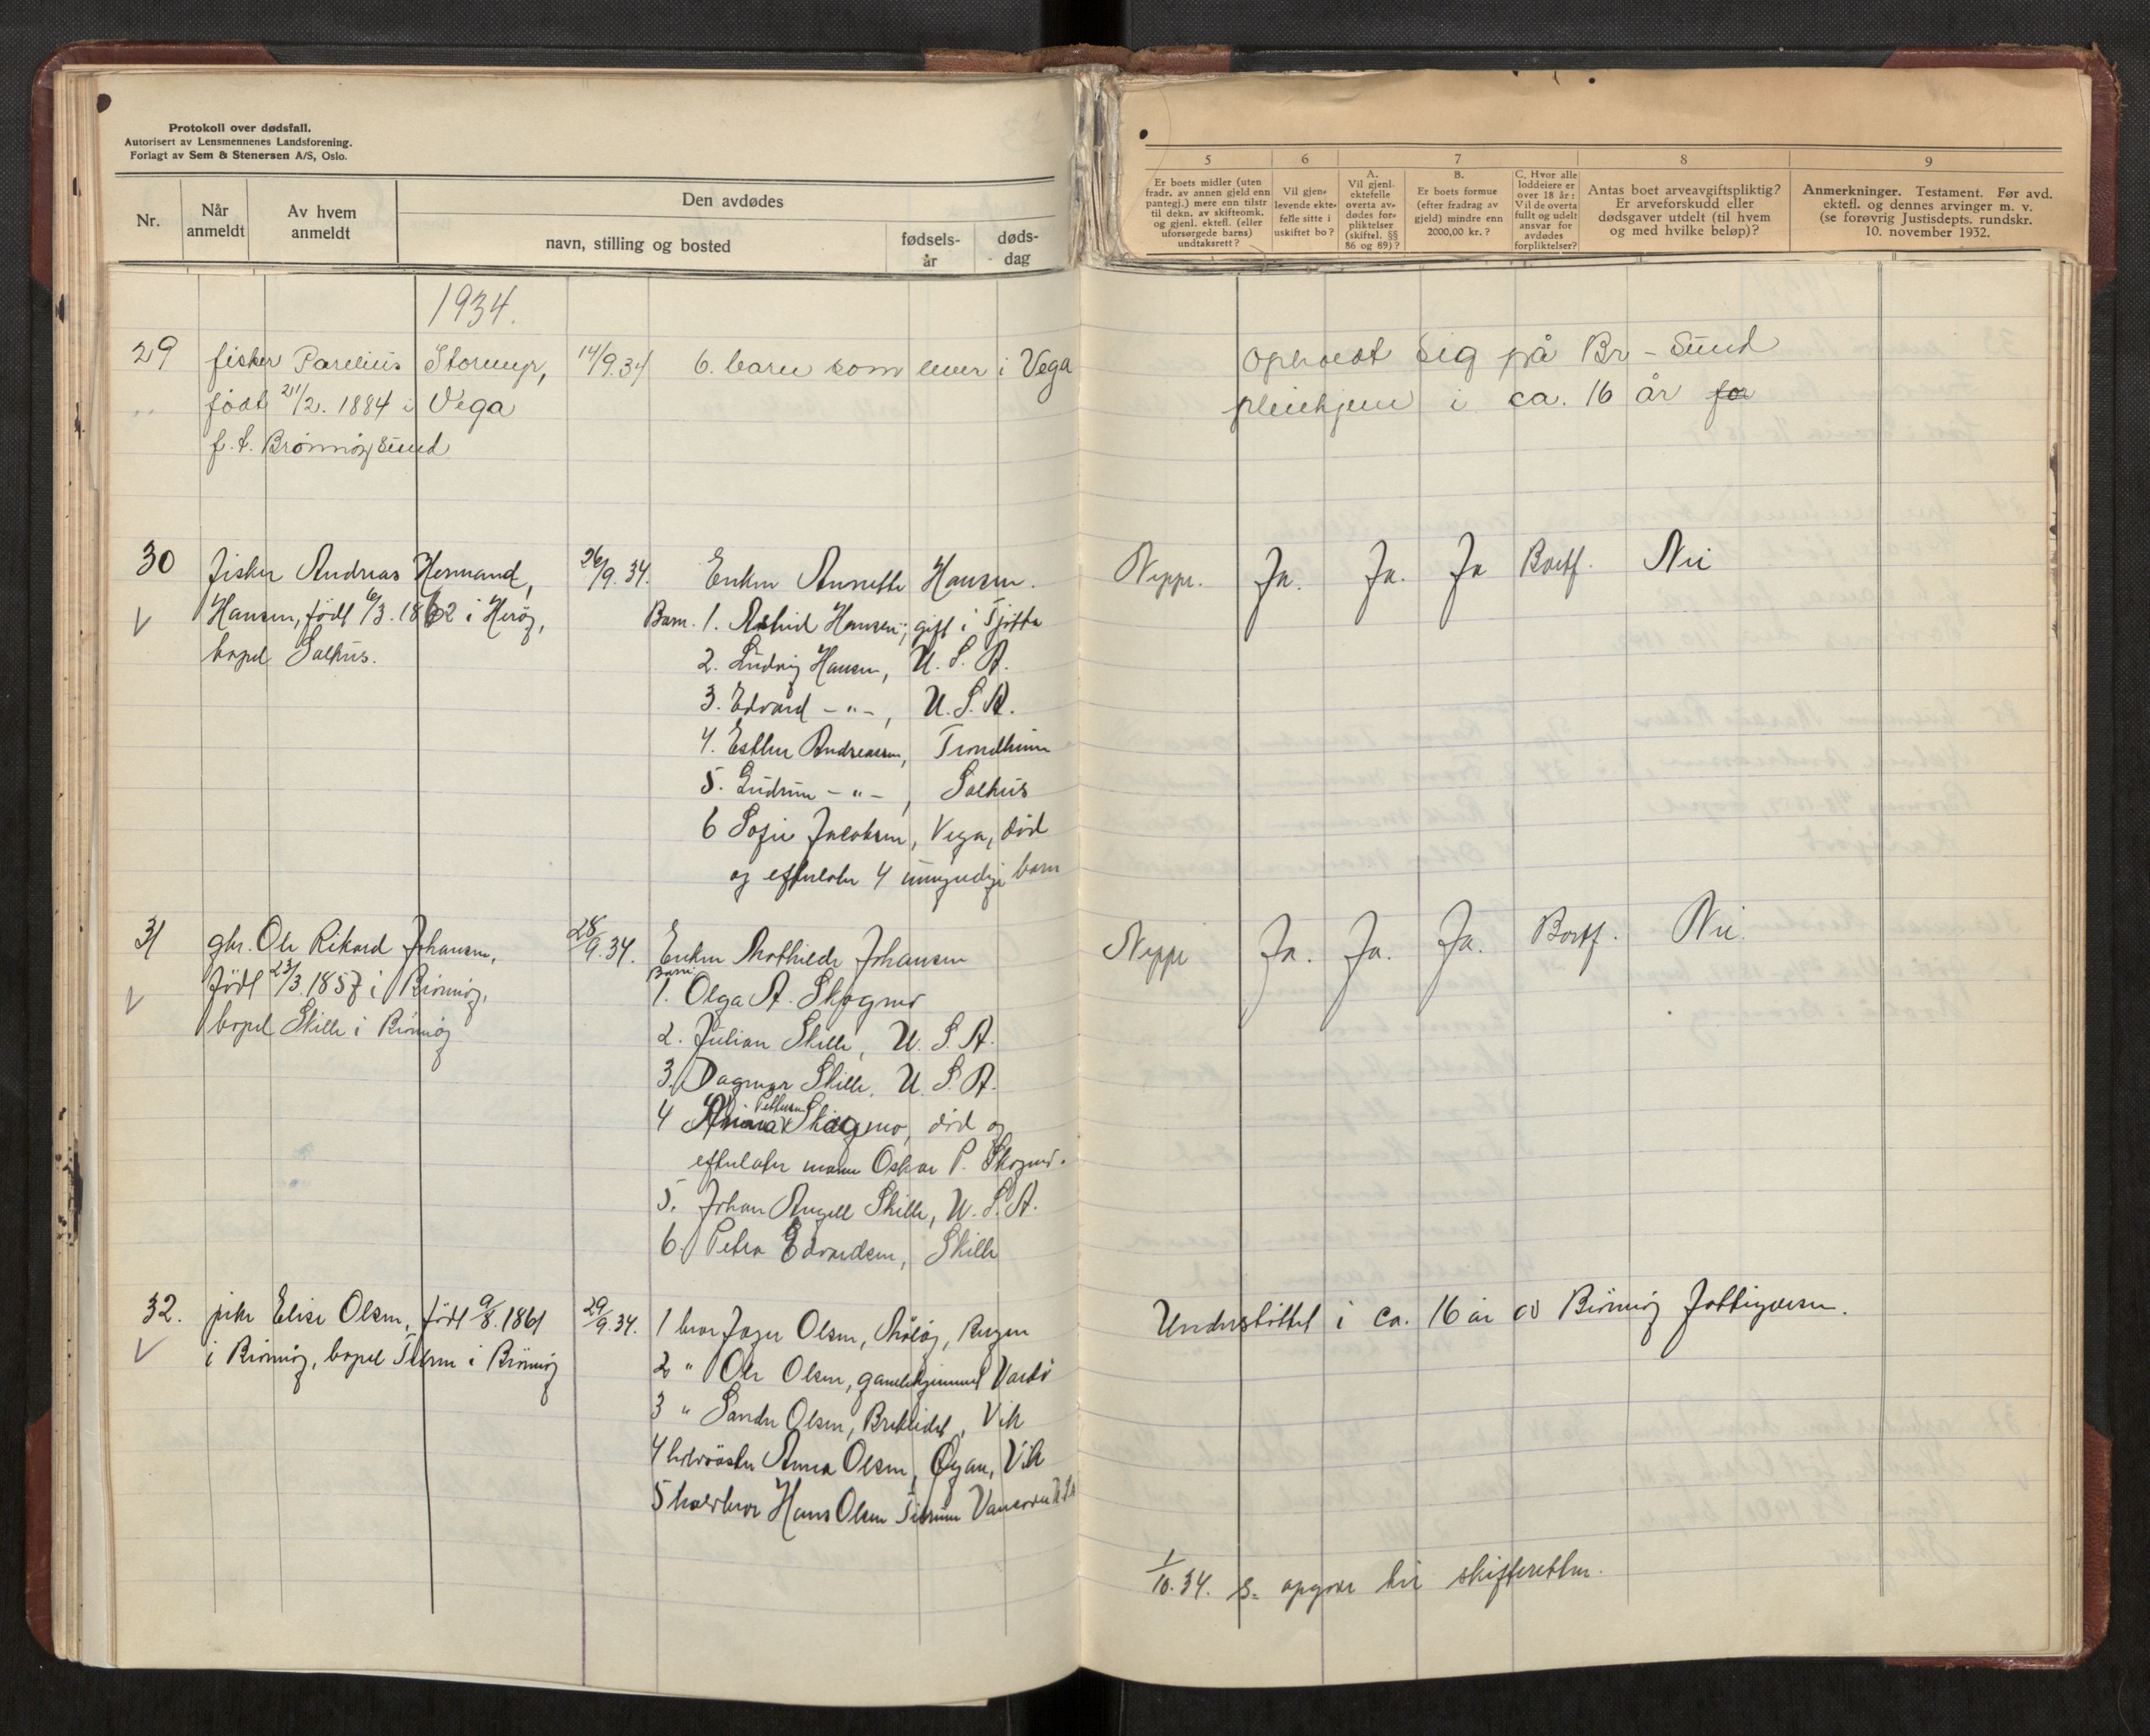 Protokoll over dødsfall.
Autorisert av Lensmennenes Landsforening.
Forlagt av Sem & Stenersen A/S, Oslo.
Nr.
Når anmeldt
Av hvem anmeldt
Den avdødes
navn, stilling og bosted
fødsels-år
døds-dag
5
Er boets midler (uten
fradr. av annen gjeld enn
pantegj.) mere enn tilstr
til dekn. av skifteomk.
og gjenl. ektefl. (eller
uforsørgede barns)
undtaksrett?
6
Vil gjen-
levende ekte-
felle sitte i
uskiftet bo?
7
A.
Vil gjenl.
ektefelle
overta av-
dødes for-
pliktelser
(skiftel. §§
86 og 89)?
B.
Er boets formue
(efter fradrag av
gjeld) mindre enn
2000,00 kr.?
C. Hvor alle
loddeiere er
over 18 år:
Vil de overta
fullt og udelt
ansvar for
avdødes
forpliktelser?
8
Antas boet arveavgiftspliktig?
Er arveforskudd eller
dødsgaver utdelt (til hvem
og med hvilke beløp)?
9
Anmerkninger. Testament. Før avd.
ektefl. og dennes arvinger m. v.
(se forøvrig Justisdepts. rundskr.
10. november 1932.
1934.
29 fisker Parelius Stormyr, 14/9.34 6. barn som lever i Vega
født 21/2. 1884 i Vega
f.t. Brønnøysund
opholdt sig på Br-Sund
pleiehjem i ca. 16 år for
30 fisker Andreas Hermand 26/9.34. Enken Annette Hansen. Neppe. Ja. Ja. Ja Bortf. Nei
Hansen, født 6/3. 1862 i Herøy, Barn. 1. Astrid Hansen, gift i Tjøtta
bopel Salhus. 2. Ludvig Hansen, U.S.A.
3. Edvard -"-, U.S.A.
4. Esther Andreassen, Trondheim
5. Gudrun -"-, Salhus
6 Sofie Jacobsen, Vega, død
og efterlater 4 umyndige barn
31 gbr. Ole Rikard Johansen, 28/9.34. Enken Mathilde Johansen Neppe Ja. Ja. Ja. Bortf. Nei.
født 23/3. 1857 i Brønnøy, Barn:
1. Olga A. Skogmo
bopel Skille i Brønnøy 2. Julian Skille, U.S.A.
3. Dagmar Skille, U.S.A.
4 Skogmo, død og
efterlater mann Oskar P. Skogmo.
5. Johan Angell Skille, U.S.A.
6. Petra Edvardsen, Skille
32. pike Elise Olsen, født 9/8. 1861 29/9.34. 1 bror Olsen,
i Brønnøy, bopel i Brønnøy 2 " Ole Olsen, gamlehjemmet Vardø
3 " Sander Olsen, Vik
4 halvsøster Anna Olsen, Øyan, Vik
5 halvbror Hans Olsen
Understøttet i ca. 16 år av Brønnøy Fattigvesen.
1/10.34. S. opgave til skifteretten.